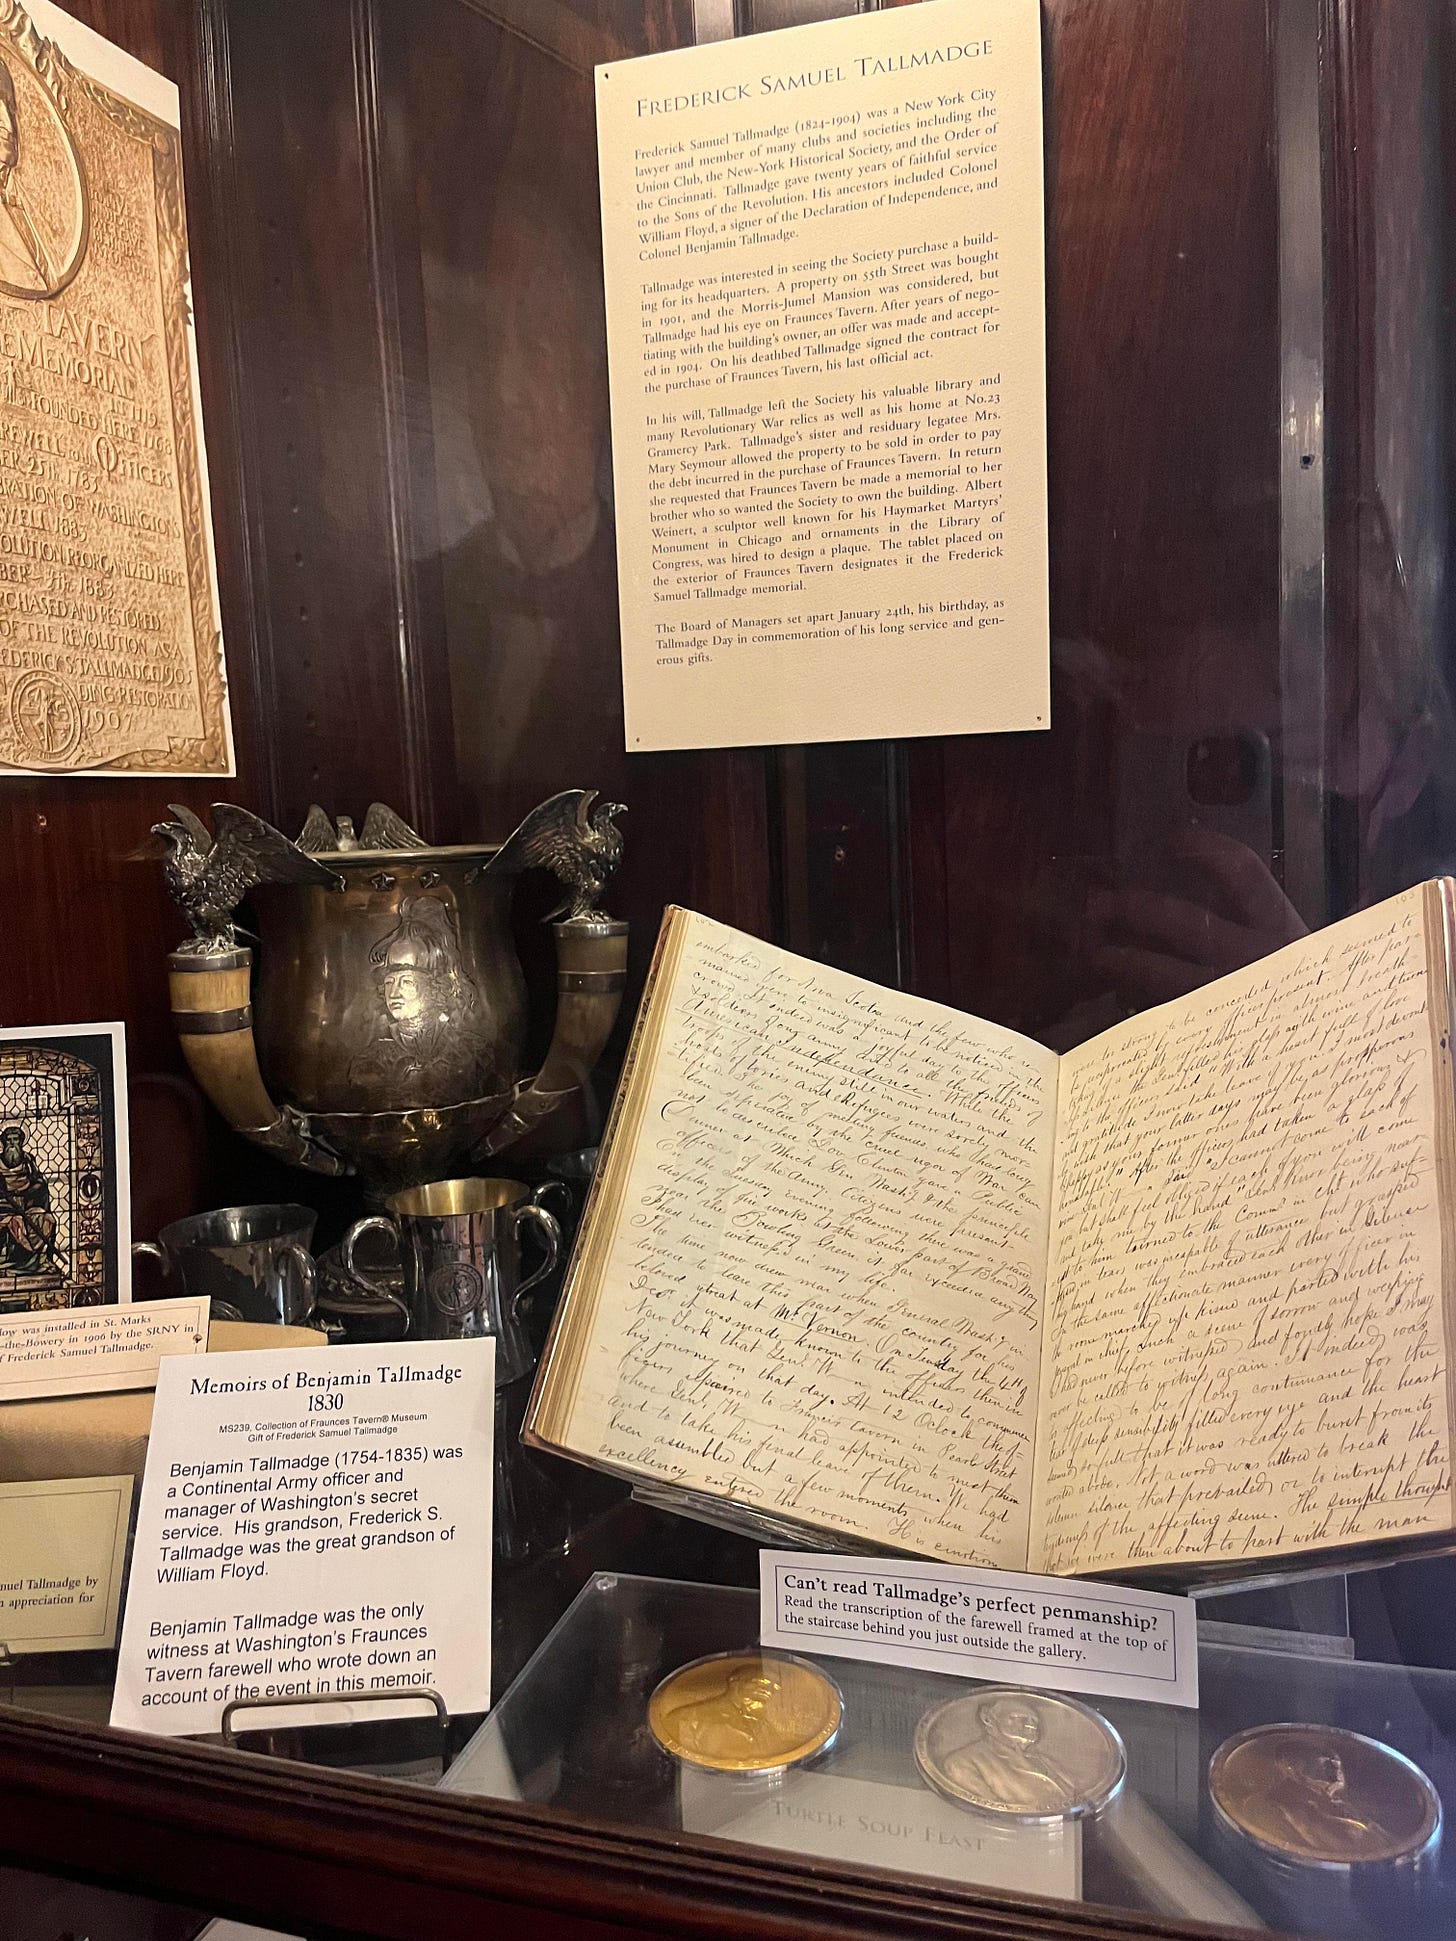 TAVERN
MEMORIAL
IN 1719
FOUNDED HERE 1768
FAREWELL TO HIS OFFICERS
25TH, 1783
WASHINGTON'S
1883
REORGANIZED HERE
1883
PURCHASED AND RESTORED
OF THE REVOLUTION AS A
FREDERICK S. TALLMADGE 1905
RESTORATION
1907
FREDERICK SAMUEL TALLMADGE
Frederick Samuel Tallmadge (1824-1904) was a New York City
lawyer and member of many clubs and societies including the
Union Club, the New-York Historical Society, and the Order of
the Cincinnati. Tallmadge gave twenty years of faithful service
to the Sons of the Revolution. His ancestors included Colonel
William Floyd, a signer of the Declaration of Independence, and
Colonel Benjamin Tallmadge.
Tallmadge was interested in seeing the Society purchase a build-
ing for its headquarters. A property on 55th Street was bought
in 1901, and the Morris-Jumel Mansion was considered, but
Tallmadge had his eye on Fraunces Tavern. After years of nego-
tiating with the building's owner, an offer was made and accept-
ed in 1904. On his deathbed Tallmadge signed the contract for
the purchase of Fraunces Tavern, his last official act.
In his will, Tallmadge left the Society his valuable library and
many Revolutionary War relics as well as his home at No.23
Gramercy Park. Tallmadge's sister and residuary legatee Mrs.
Mary Seymour allowed the property to be sold in order to pay
the debt incurred in the purchase of Fraunces Tavern. In return
she requested that Fraunces Tavern be made a memorial to her
brother who so wanted the Society to own the building. Albert
Weinert, a sculptor well known for his Haymarket Martyrs'
Monument in Chicago and ornaments in the Library of
Congress, was hired to design a plaque. The tablet placed on
the exterior of Fraunces Tavern designates it the Frederick
Samuel Tallmadge memorial.
The Board of Managers set apart January 24th, his birthday, as
Tallmadge Day in commemoration of his long service and gen-
erous gifts.
embarked for Nova Scotia and the few who re-
mained were to insignificant to be noticed in the
crowd. It indeed was a joyful day to the officers
& soldiers of our army and to all the friends of
American Independence. While the
troops of the enemy still in our waters and the
hosts of tories and Refugees were sorely mor-
tified. The joy of meeting friends, who had long
been separated by the cruel rigor of War, can
not be described. Gov Clinton gave a Public
Dinner at Which Gen. Wash'n & the principle
officers of the Army, Citizens were present.
On the Tuesday evening following there was a grand
display of fire works at the Lower part of Broad Way
near the Bowling Green. it far exceeded any thing
I had ever witness'd in my life.
The time now drew near when General Wash'n in-
tended to leave this part of the country for his
beloved retreat at Mt. Vernon. On Tuesday the 4th of
Decr it was made known to the officers then in
New York that Genl W—n intended to commence
his journey on that day. At 12 Oclock the of-
ficers repaired to Francis tavern in Pearle Street
where Gen'l W—n had appointed to meet them
and to take his final leave of them. We had
been assembled but a few moments when his
excellency entered the room. His emotion
were too strong to be concealed which seemed to
be reciprocated by every officer present. After par-
taking of a slight refreshment in almost breath-
less silence the Gen'l filled his glass with wine and turn-
ing to the officers said "With a heart full of love
and gratitude I now take leave of you. I most devout-
ly wish that your latter days may be as prosperous &
happy as your former ones have been glorious &
honorable." After the officers had taken a glass of
wine Gen'l W—n said "I cannot come to each of
you but shall feel obliged if each of you will come
and take me by the hand" Genl Knox being near-
est to him turned to the Comm in Cht who suf-
fused in tears was incapable of utterance but grasped
his hand when they embraced each other in silence
In the same affectionate manner every officer in
the room marched up kissed and parted with his
general in chief. Such a scene of sorrow and weeping
I had never before witnessed and fondly hope I may
never be called to witness again. It indeed was
too affecting to be of long continuance for the
tear of deep sensibility filled every eye and the heart
seemed so full that it was ready to burst from its
wonted abode. Not a word was uttered to break the
solemn silence that prevailed or to interrupt the
tenderness of the affecting scene. The simple thought
that we were then about to part with the man
was installed in St. Marks
-the-Bowery in 1906 by the SRNY in
of Frederick Samuel Tallmadge.
Tallmadge by
appreciation for
Memoirs of Benjamin Tallmadge
1830
MS239, Collection of Fraunces Tavern® Museum
Gift of Frederick Samuel Tallmadge
Benjamin Tallmadge (1754-1835) was
a Continental Army officer and
manager of Washington's secret
service. His grandson, Frederick S.
Tallmadge was the great grandson of
William Floyd.
Benjamin Tallmadge was the only
witness at Washington's Fraunces
Tavern farewell who wrote down an
account of the event in this memoir.
Can't read Tallmadge's perfect penmanship?
Read the transcription of the farewell framed at the top of
the staircase behind you just outside the gallery.
TURTLE SOUP FEAST